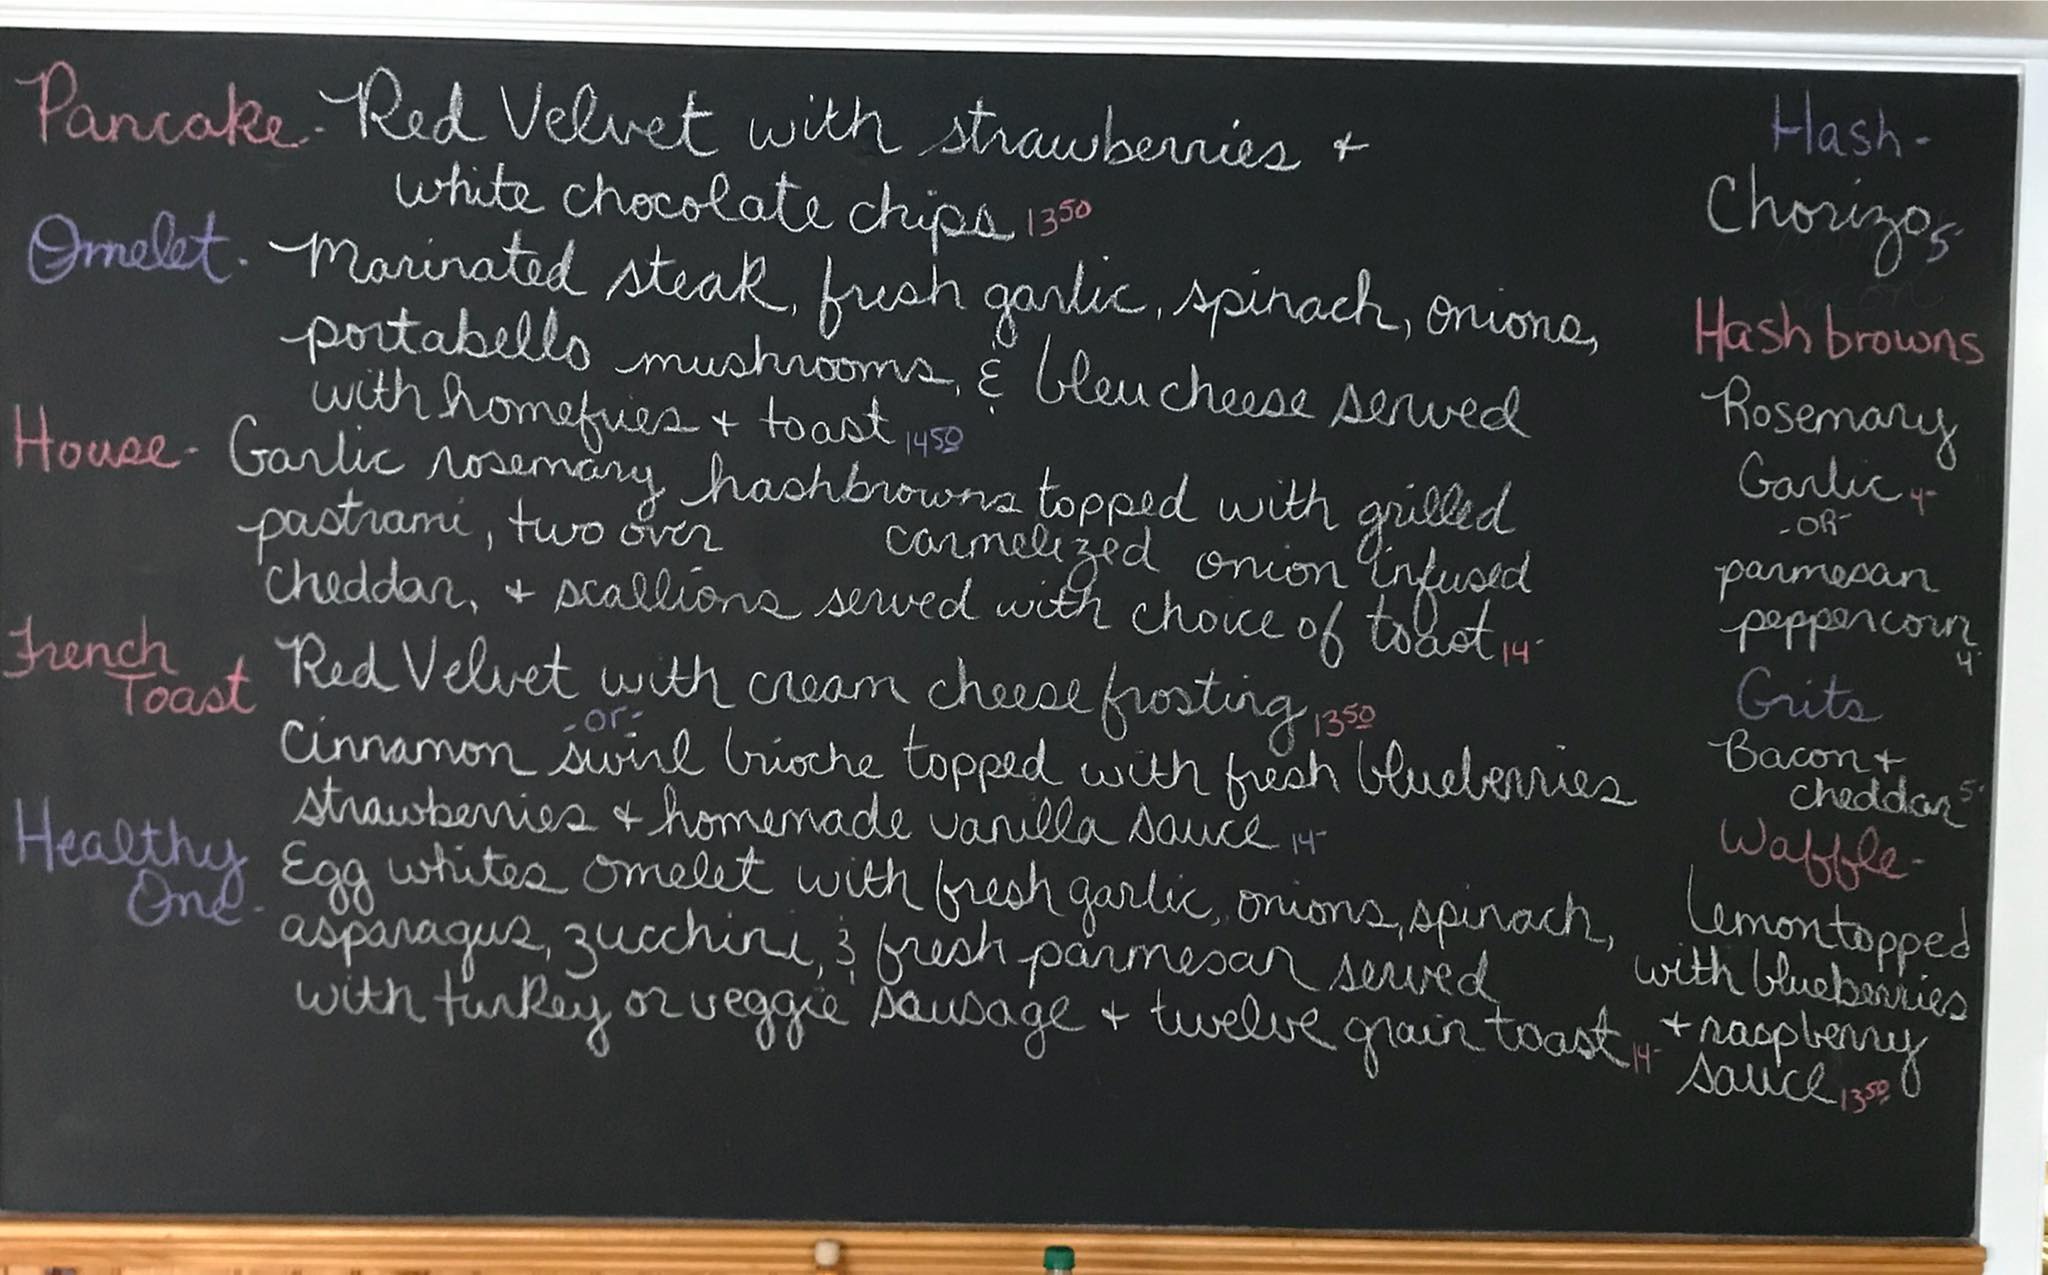 Pancake - Red Velvet with strawberries +
white chocolate chips 13⁵⁰
Omelet - Marinated steak, fresh garlic, spinach, onions,
portabello mushrooms, & bleu cheese served
with homefries + toast 14⁵⁰
House - Garlic rosemary hashbrowns topped with grilled
pastrami, two over carmelized onion infused
cheddar, + scallions served with choice of toast 14-
French Toast Red Velvet with cream cheese frosting 13⁵⁰
-or-
Cinnamon swirl brioche topped with fresh blueberries
strawberries + homemade vanilla sauce 14-
Healthy One - Egg whites omelet with fresh garlic, onions, spinach,
asparagus, zucchini, & fresh parmesan served
with turkey or veggie sausage + twelve grain toast 14-
Hash -
Chorizo 5-
Hashbrowns
Rosemary
Garlic 4-
-OR-
parmesan
peppercorn
4-
Grits
Bacon +
cheddar 5-
Waffle -
Lemon topped
with blueberries
+ raspberry
sauce 13⁵⁰